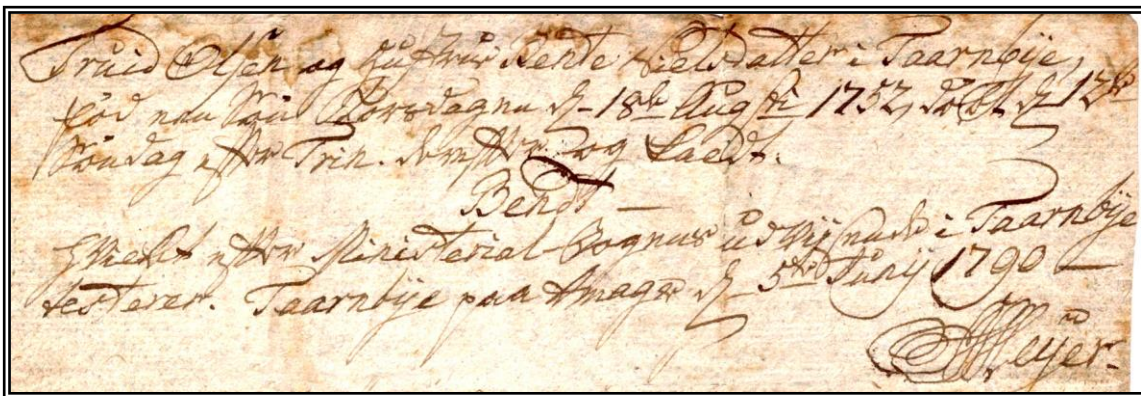 Truid Olsen og Hustrue Bente Nielsdatter i Taarnbÿe,
föd een Sön Torsdagen d. 18de Augusti 1752, döbt d. 12te
Söndag efter Trin. derefter og kaldt.
Bendt —
Saaledt efter Ministerial-Bogens udviisende i Taarnbÿe
testerer. Taarnbÿe paa Amager d. 5te Junij 1790 —
Meÿer.